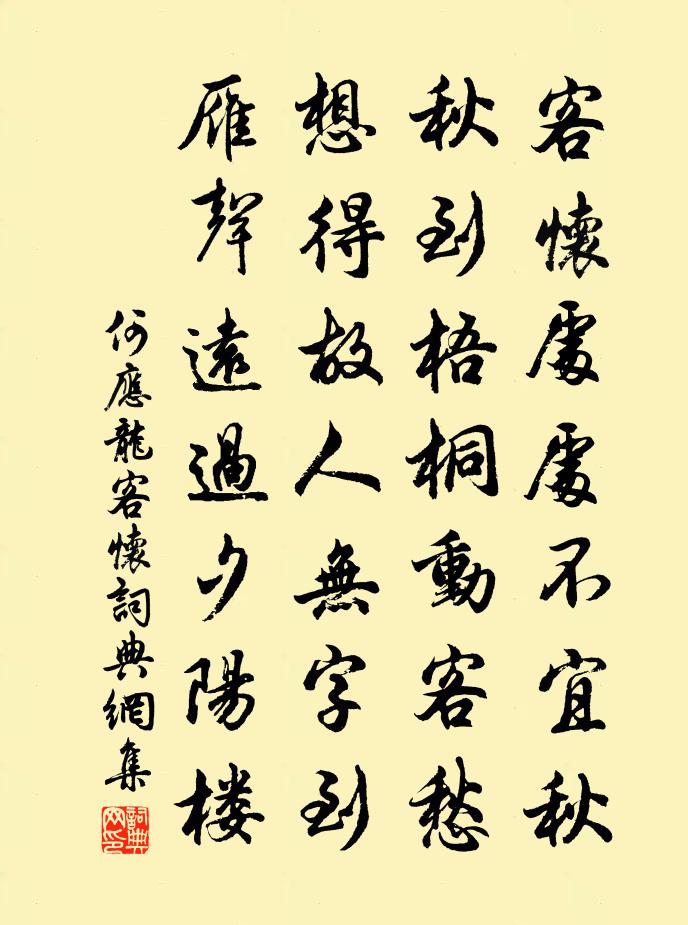 客懷處處不宜秋
秋到梧桐動客愁
想得故人無字到
雁聲遠過夕陽楼
何應龍客懷詞典網集
詞典
网印